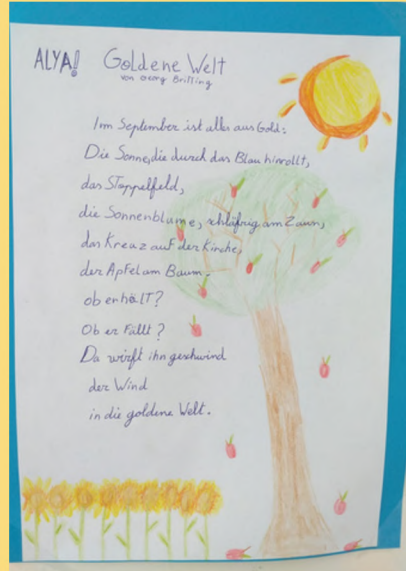 ALYA! Goldene Welt
von Georg Britting
Im September ist alles aus Gold:
Die Sonne, die durch das Blau hinrollt,
das Stoppelfeld,
die Sonnenblume, schläfrig am Zaun,
das Kreuz auf der Kirche,
der Apfel am Baum.
ob er hält?
Ob er fällt?
Da wirft ihn geschwind
der Wind
in die goldene Welt.